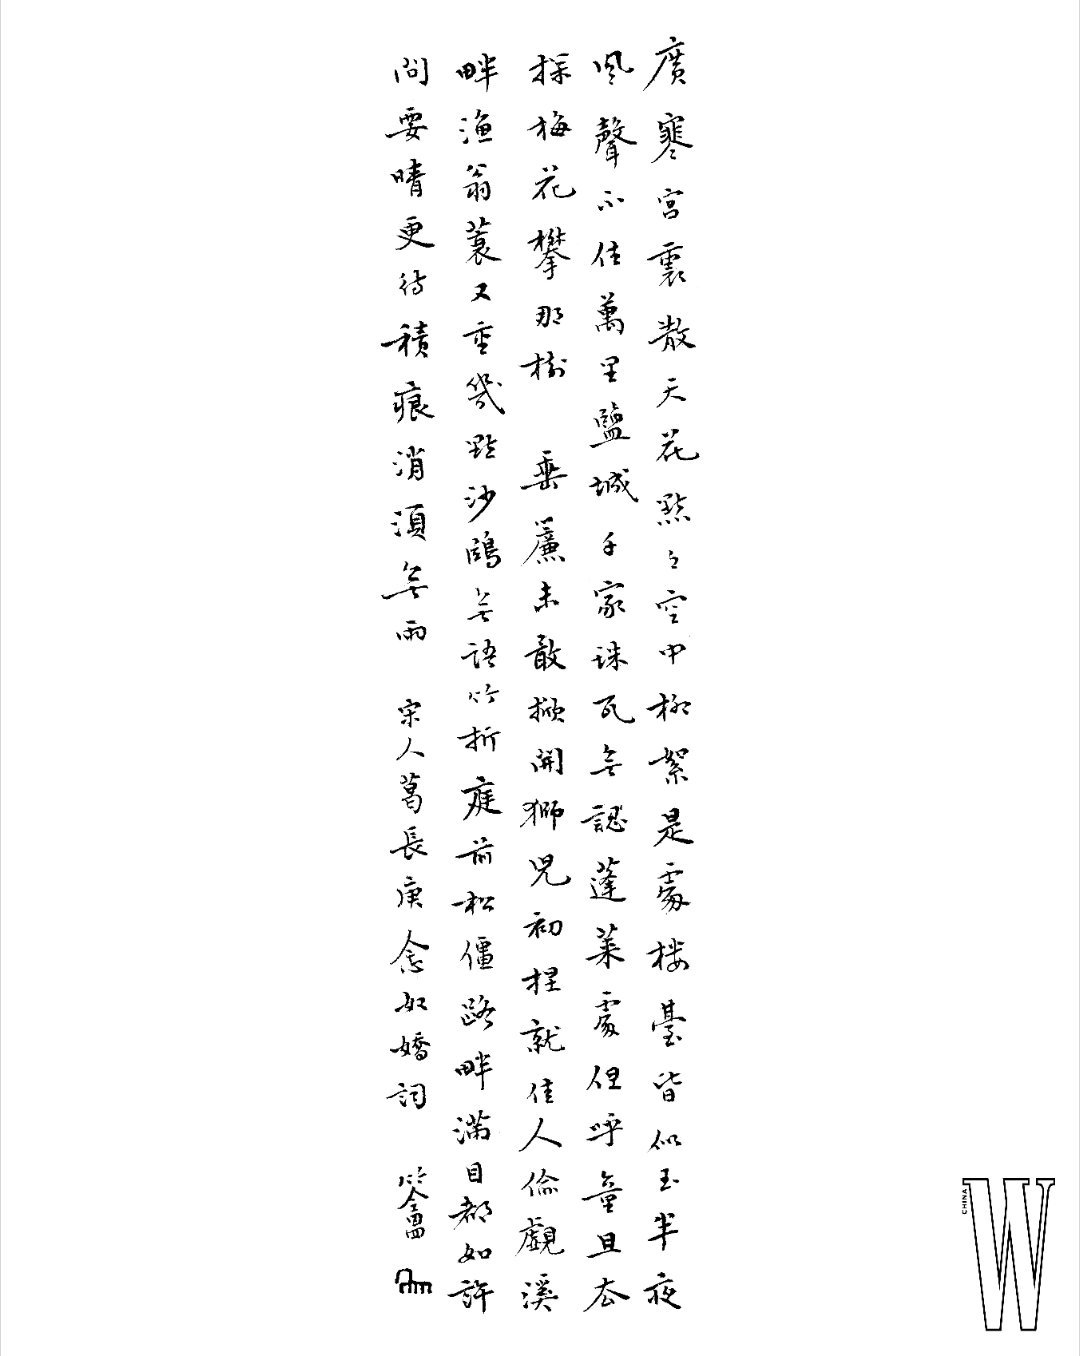 廣寒宮裏散天花點々空中柳絮是處樓臺皆似玉半夜
風聲不住萬里鹽城千家珠瓦無認蓬萊處但呼童且去
探梅花攀那樹 垂簾未敢掀開獅兒初捏就佳人偷觀溪
畔漁翁蓑又重幾點沙鷗無語竹折庭前松僵路畔滿目都如許
問要晴更待積痕消須無雨 宋人葛長庚念奴嬌詞
CHINA
W